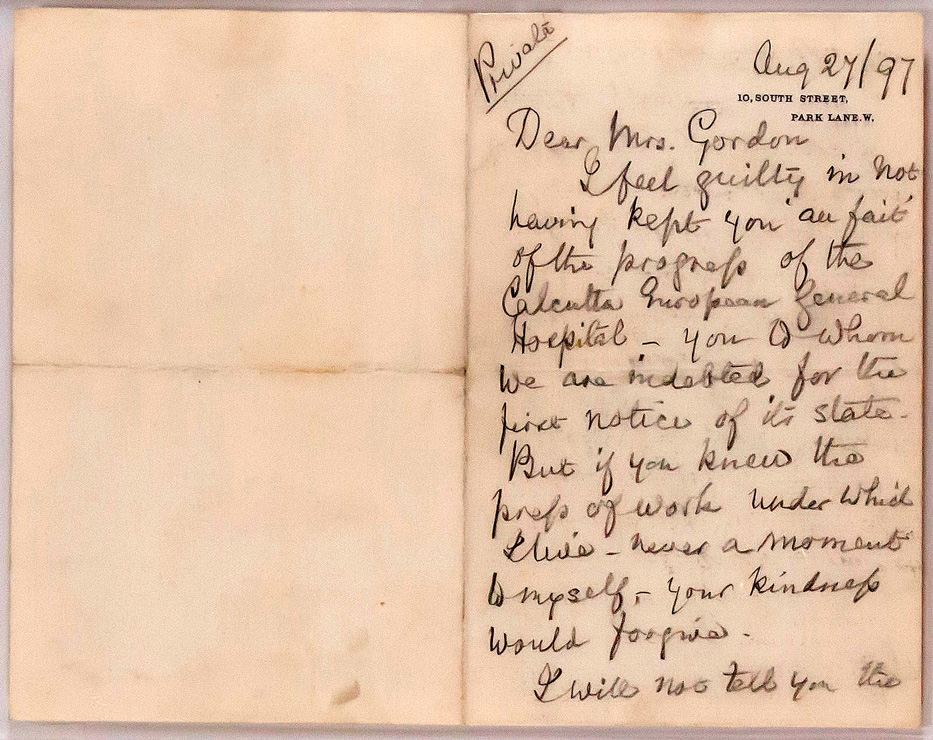 Private
Aug 27/97
10, SOUTH STREET,
PARK LANE. W.
Dear Mrs. Gordon
I feel guilty in not
having kept you "au fait"
of the progress of the
Calcutta European General
Hospital – you to whom
we are indebted for the
first notice of its state.
But if you knew the
press of work under which
I live – never a moment
to myself, – your kindness
would forgive.
I will not tell you the